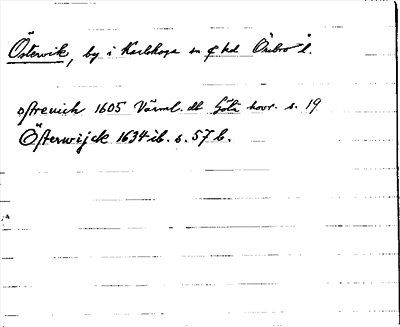 Östervik, by i Karlskoga sn o hd Örebro l.
ostreuich 1605 Värml. dl Göta hovr. s. 19
Österwijck 1634 ib. s. 57 b.